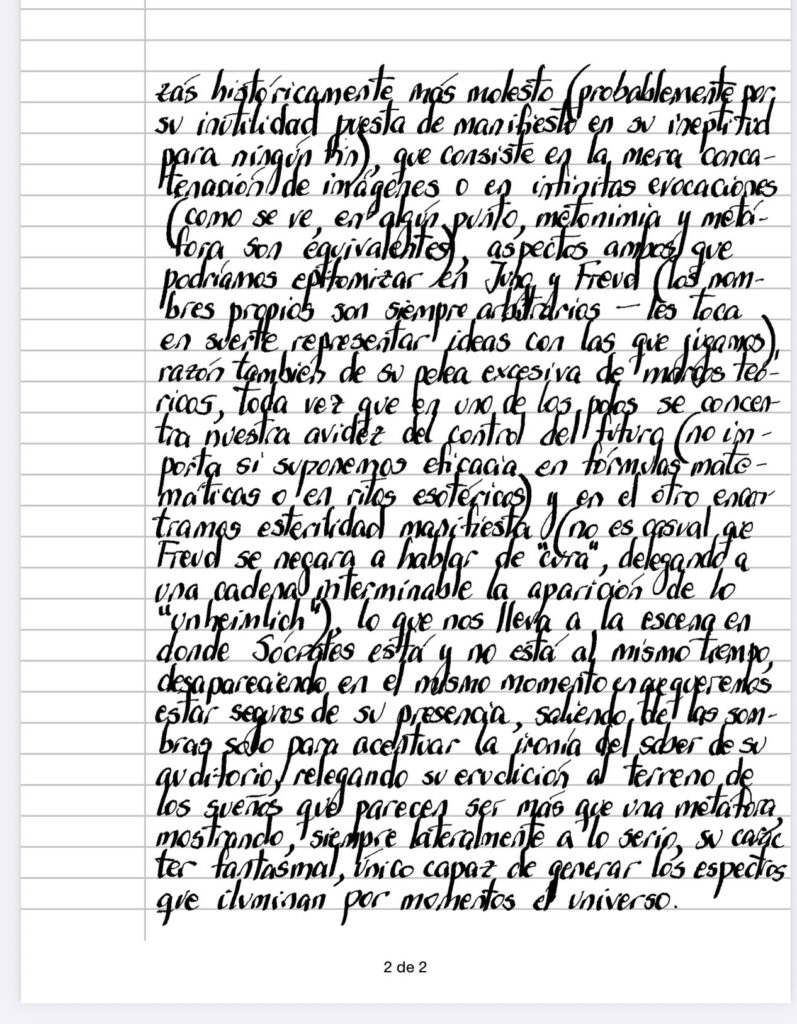 zás históricamente más molesto (probablemente por
su inutilidad puesta de manifiesto en su ineptitud
para ningún fin), que consiste en la mera conca-
tenación de imágenes o en infinitas evocaciones
(como se ve, en algún punto, metonimia y metá-
fora son equivalentes), aspectos ambos que
podríamos epitomizar en Jung y Freud (los nom-
bres propios son siempre arbitrarios — les toca
en suerte representar ideas con las que jugamos),
razón también de su pelea excesiva de marcos teó-
ricos, toda vez que en uno de los polos se concen-
tra nuestra avidez del control del futuro (no im-
porta si suponemos eficacia en fórmulas mate-
máticas o en ritos esotéricos) y en el otro encon-
tramos esterilidad manifiesta (no es casual que
Freud se negara a hablar de "cura", delegando a
una cadena interminable la aparición de lo
"unheimlich"), lo que nos lleva a la escena en
donde Sócrates está y no está al mismo tiempo,
desapareciendo en el mismo momento en que queremos
estar seguros de su presencia, saliendo de las som-
bras solo para aceptuar la ironía del saber de su
auditorio, relegando su erudición al terreno de
los sueños que parecen ser más que una metáfora,
mostrando, siempre lateralmente a lo serio, su carác
ter fantasmal, único capaz de generar los espectros
que iluminan por momentos el universo.
2 de 2